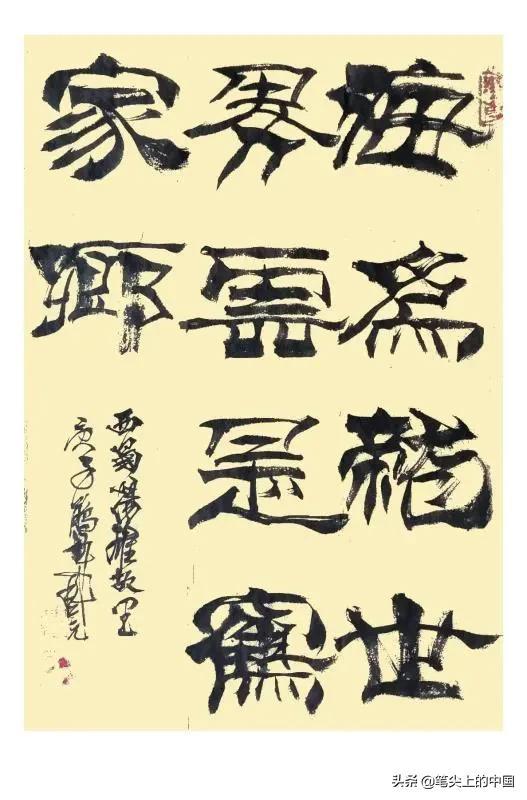 海為龍世
界雲是鶴
家鄉
西蜀揚雄故里
庚子
头条 @笔尖上的中国